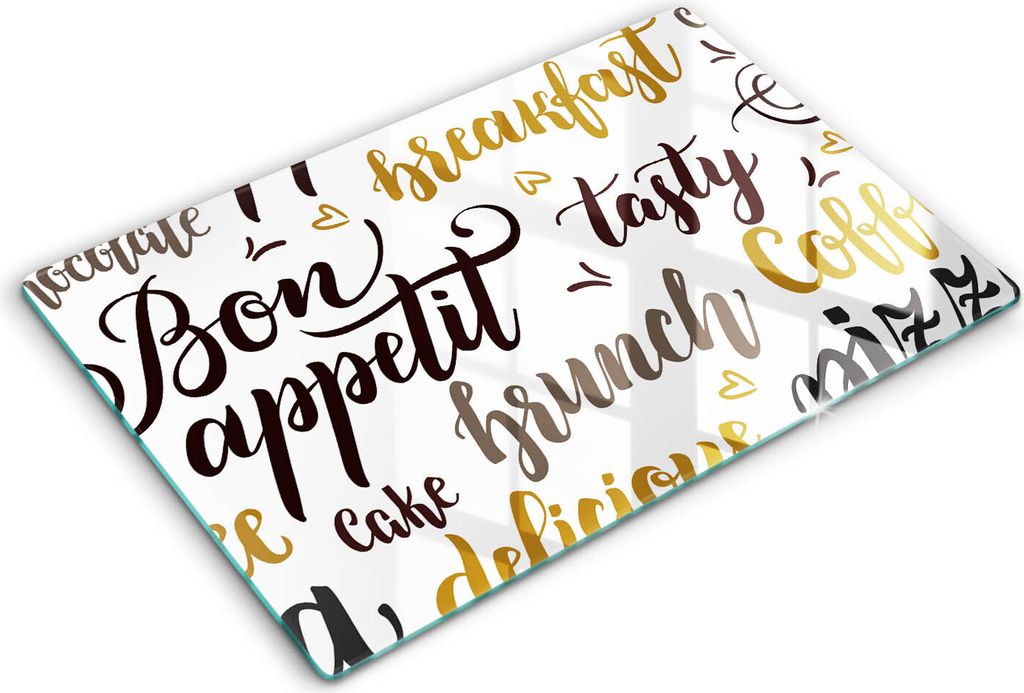 breakfast
tasty
Coff
hocolate
Bon
appetit
brunch
pizz
cake
delicious
ee
a